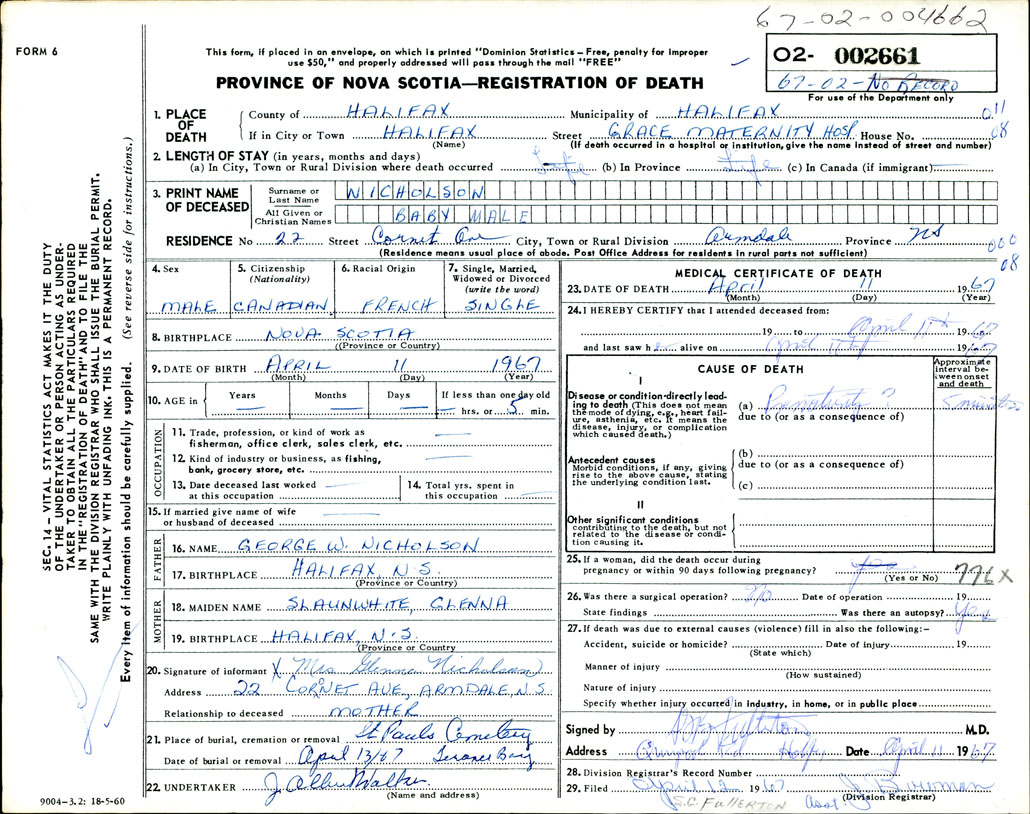 67-02-004662
FORM 6
This form, if placed in an envelope, on which is printed "Dominion Statistics – Free, penalty for improper
use $50," and properly addressed will pass through the mail "FREE"
PROVINCE OF NOVA SCOTIA—REGISTRATION OF DEATH
02- 002661
67-02-No RECORD
For use of the Department only
SEC. 14 – VITAL STATISTICS ACT MAKES IT THE DUTY
OF THE UNDERTAKER OR PERSON ACTING AS UNDER-
TAKER TO OBTAIN ALL THE PARTICULARS REQUIRED
IN THE "REGISTRATION OF DEATH" AND TO FILE THE
SAME WITH THE DIVISION REGISTRAR WHO SHALL ISSUE THE BURIAL PERMIT.
WRITE PLAINLY WITH UNFADING INK. THIS IS A PERMANENT RECORD.
Every item of information should be carefully supplied. (See reverse side for instructions.)
1. PLACE OF DEATH
County of HALIFAX Municipality of HALIFAX 011
If in City or Town HALIFAX Street GRACE MATERNITY HOSP. House No. 08
(Name) (If death occurred in a hospital or institution, give the name instead of street and number)
2. LENGTH OF STAY (in years, months and days)
(a) In City, Town or Rural Division where death occurred Life (b) In Province Life (c) In Canada (if immigrant)
3. PRINT NAME OF DECEASED
Surname or Last Name NICHOLSON
All Given or Christian Names BABY MALE
RESIDENCE No 22 Street Cornet Ave City, Town or Rural Division Armdale Province NS 000
(Residence means usual place of abode. Post Office Address for residents in rural parts not sufficient) 08
4. Sex MALE
5. Citizenship (Nationality) CANADIAN
6. Racial Origin FRENCH
7. Single, Married, Widowed or Divorced (write the word) SINGLE
8. BIRTHPLACE NOVA SCOTIA
((Province or Country)
9. DATE OF BIRTH APRIL 11 1967
(Month) (Day) (Year)
10. AGE in Years Months Days If less than one day old
hrs. or 5 min.
OCCUPATION
11. Trade, profession, or kind of work as
fisherman, office clerk, sales clerk, etc.
12. Kind of industry or business, as fishing,
bank, grocery store, etc.
13. Date deceased last worked
at this occupation
14. Total yrs. spent in
this occupation
15. If married give name of wife
or husband of deceased
FATHER
16. NAME GEORGE W. NICHOLSON
17. BIRTHPLACE HALIFAX, N.S.
(Province or Country)
MOTHER
18. MAIDEN NAME SLAUNWHITE, GLENNA
19. BIRTHPLACE HALIFAX, N.S.
(Province or Country)
20. Signature of informant X Mrs Glenna Nicholson
Address 22 CORNET AVE, ARMDALE, N.S.
Relationship to deceased MOTHER
21. Place of burial, cremation or removal St Pauls Cemetery
Date of burial or removal April 13/67 Terance Bay
22. UNDERTAKER J. Albert Walker
(Name and address)
9004-3.2: 18-5-60
MEDICAL CERTIFICATE OF DEATH
23. DATE OF DEATH April 11 1967
(Month) (Day) (Year)
24. I HEREBY CERTIFY that I attended deceased from:
19 to April 11th 1967
and last saw h alive on April 11th 1967
CAUSE OF DEATH
Approximate interval between onset and death
I
Disease or condition-directly leading to death (This does not mean the mode of dying, e.g., heart failure, asthenia, etc. It means the disease, injury, or complication which caused death.)
(a) Prematurity ? 5 minutes
due to (or as a consequence of)
Antecedent causes
Morbid conditions, if any, giving rise to the above cause, stating the underlying condition last.
(b)
due to (or as a consequence of)
(c)
II
Other significant conditions
contributing to the death, but not related to the disease or condition causing it.
25. If a woman, did the death occur during
pregnancy or within 90 days following pregnancy?
(Yes or No) 776X
26. Was there a surgical operation? No Date of operation 19
State findings Was there an autopsy? Yes
27. If death was due to external causes (violence) fill in also the following:–
Accident, suicide or homicide? Date of injury 19
(State which)
Manner of injury
(How sustained)
Nature of injury
Specify whether injury occurred in industry, in home, or in public place
Signed by Fullerton M.D.
Address Date April 11 1967
28. Division Registrar's Record Number
29. Filed April 12 1967 J Bowman
(Division Registrar)
S.G. FULLERTON Asst.